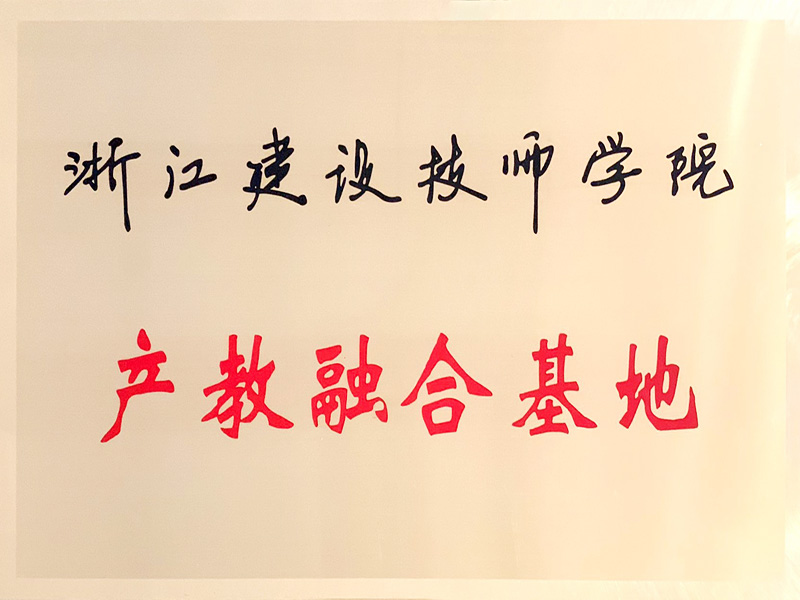 浙江建设技师学院
产教融合基地